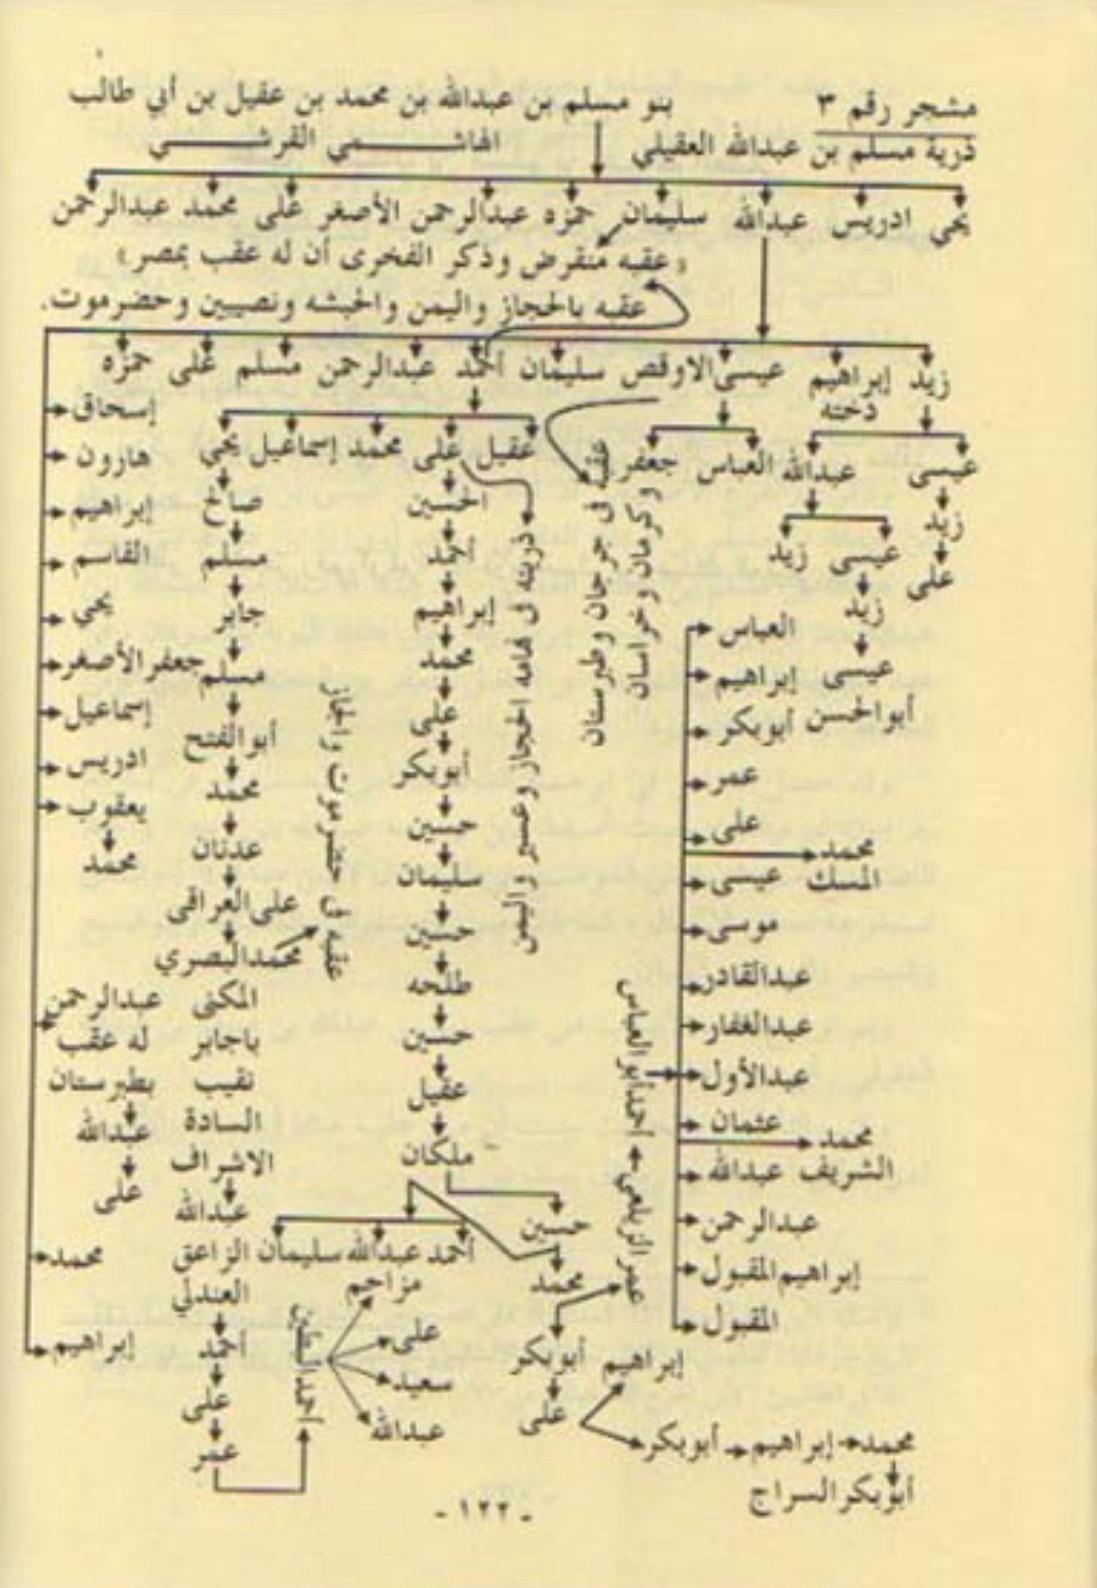 مشجر رقم ٣
بنو مسلم بن عبدالله بن محمد بن عقيل بن أبي طالب
ذرية مسلم بن عبدالله العقيلي
الهاشـــــمي القرشـــــي
يحي ادريس عبدالله سليمان حمزه عبدالرحمن الأصغر على محمد عبدالرحمن
«عقبه منقرض وذكر الفخرى أن له عقب بمصر»
عقبه بالحجاز واليمن والحبشه ونصيبين وحضرموت.
زيد إبراهيم عيسى الاوقص سليمان أحمد عبدالرحمن مسلم على حمزه
دخنه
عيسى
زيد
على
عبدالله
عيسى زيد
زيد
عيسى
أبوالحسن
العباس جعفر
عقبه فى جرجان وطبرستان
وكرمان وخراسان
عقيل على محمد إسماعيل يحي
ذريته فى تهامه الحجاز وعسير واليمن
الحسين
إبراهيم
محمد
على
أبوبكر
حسين
سليمان
حسين
طلحه
حسين
عقيل
ملكان
حسين
أحمد عبدالله سليمان
محمد
أبوبكر
على
إبراهيم
أبوبكر إبراهيم محمد
أبوبكر السراج
عمر الزيلعى أحمد أبو العباس
العباس
إبراهيم
أبوبكر
عمر
على
محمد
المسك
عيسى
موسى
عبدالقادر
عبدالغفار
عبدالأول
عثمان
محمد
الشريف
عبدالله
عبدالرحمن
إبراهيم المقبول
المقبول
صالح
مسلم
جابر
مسلم
أبوالفتح
محمد
عدنان
على العراقى
محمد البصري
عقبه فى حضرموت والحجاز
المكنى
باجابر
نقيب
السادة
الاشراف
عبدالله
الزاعق
العندلي
أحمد
على
عمر
مزاحم
على
سعيد
عبدالله
إسحاق
هارون
إبراهيم
القاسم
يحي
جعفر الأصغر
إسماعيل
ادريس
يعقوب
محمد
عبدالرحمن
له عقب
بطبرستان
عبدالله
على
محمد
إبراهيم
- ١٢٢ -